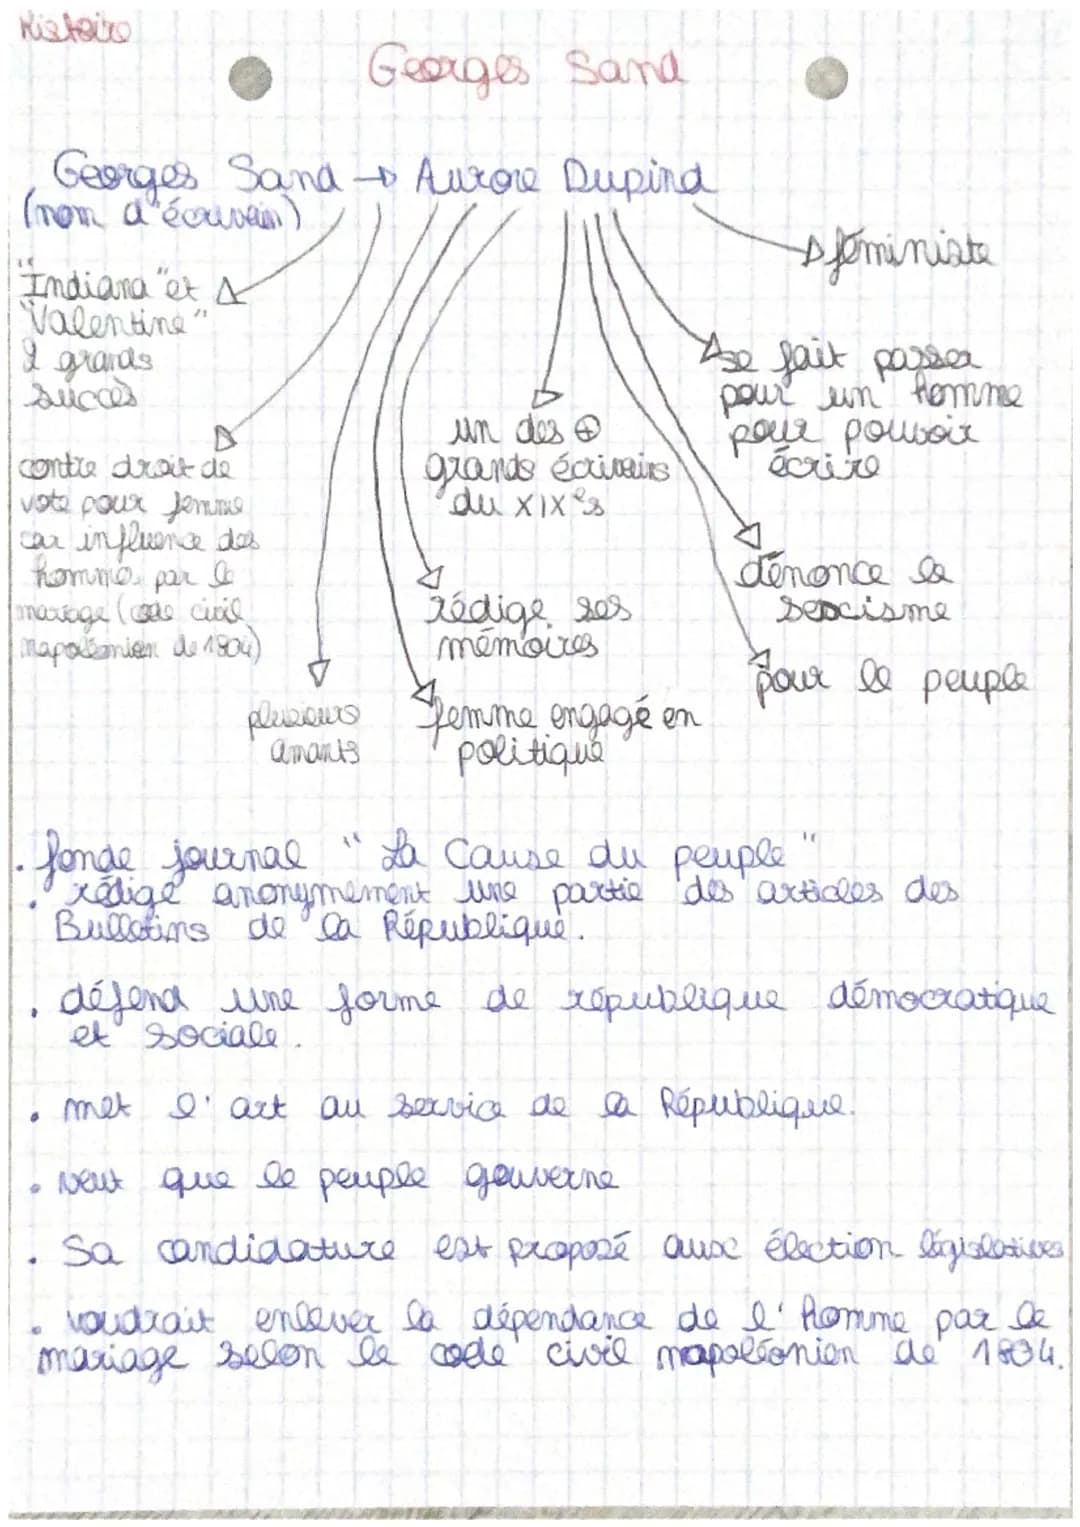 Histoire
Georges Sand
Georges Sand → Aurore Dupind
(nom d'écrivain)
féministe
"Indiana" et
"Valentine"
2 grands
succès
se fait passer
pour un homme
pour pouvoir
écrire
un des ⊕
grands écrivains
du XIXe s
contre droit de
vote pour femme
car influence des
hommes par le
mariage (code civil
napoléonien de 1804)
dénonce le
sexcisme
rédige ses
mémoires
pour le peuple
plusieurs
amants
femme engagé en
politique
. fonde journal "La Cause du peuple"
. rédige anonymement une partie des articles des
Bulletins de la République.
. défend une forme de république démocratique
et sociale.
. met l'art au service de la République.
. veut que le peuple gouverne
. Sa candidature est proposé aux élection législatives
. voudrait enlever la dépendance de l'homme par le
mariage selon le code civil napoléonien de 1804.